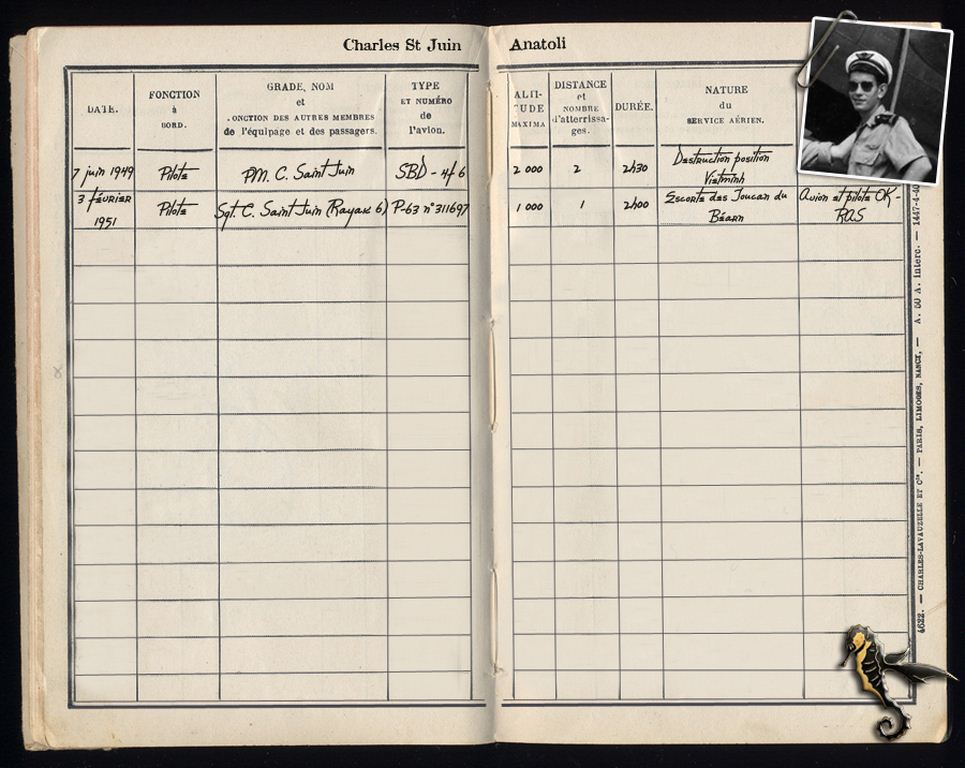 Charles St Juin Anatoli
DATE.
FONCTION
à
BORD.
GRADE, NOM
et
.ONCTION DES AUTRES MEMBRES
de l'équipage et des passagers.
TYPE
ET NUMÉRO
de
l'avion.
ALTI-
TUDE
MAXIMA
DISTANCE
et
NOMBRE
d'atterrissa-
ges.
DURÉE.
NATURE
du
SERVICE AÉRIEN.
7 juin 1949
Pilote
PM. C. Saint Juin
SBD - 4f 6
2 000
2
2h30
Destruction position
Vietminh
3 février
1951
Pilote
Sgt. C. Saint Juin (Rayak 6)
P-63 n°311697
1 000
1
2h00
Escorte des Toucan du
Béarn
Avion et pilote OK -
RAS
4622. — CHARLES-LAVAUZELLE ET Cie. — PARIS, LIMOGES, NANCY. — A. OU A. Interc. — 1447-4-40